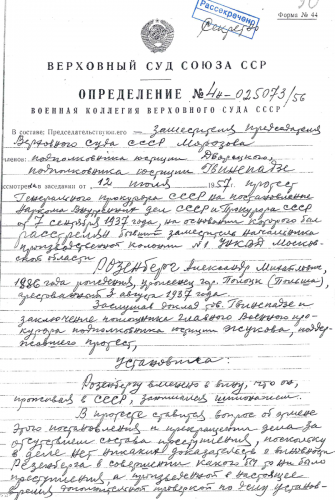 Рассекречено
Секретно
Форма № 44
ВЕРХОВНЫЙ СУД СОЮЗА ССР
ОПРЕДЕЛЕНИЕ №4н-025073/56
ВОЕННАЯ КОЛЛЕГИЯ ВЕРХОВНОГО СУДА СССР
В составе: Председательствующего заместителя председателя
Верховного Суда СССР Морозова
членов: подполковника юстиции Дворецкого,
подполковника юстиции
рассмотрела в заседании от 12 июля 1957 г. протест
Генерального прокурора СССР на постановление
Наркома Внутренних дел СССР и Прокурора СССР
от 7 сентября 1937 года, на основании которого был
расстрелян бывший заместитель начальника
производственной колонии №1 УНКВД Москов-
ской области
РОЗЕНБЕРГ Александр
1886 года рождения, уроженец гор. Полоцк (Польша),
арестованный 3 августа 1937 года.
Заслушав доклад тов. и
заключение помощника Главного Военного про-
курора подполковника юстиции Жукова, поддер-
жавшего протест,
Установила:
Розенбергу вменено в вину, что он,
проживая в СССР, занимался шпионажем.
В протесте ставится вопрос об отмене
этого постановления и прекращении дела за
отсутствием состава преступления, поскольку
в деле нет никаких доказательств о виновности
Розенберга в совершении какого бы то ни было
преступления, а произведенной в настоящее
время дополнительной проверкой по делу установ-